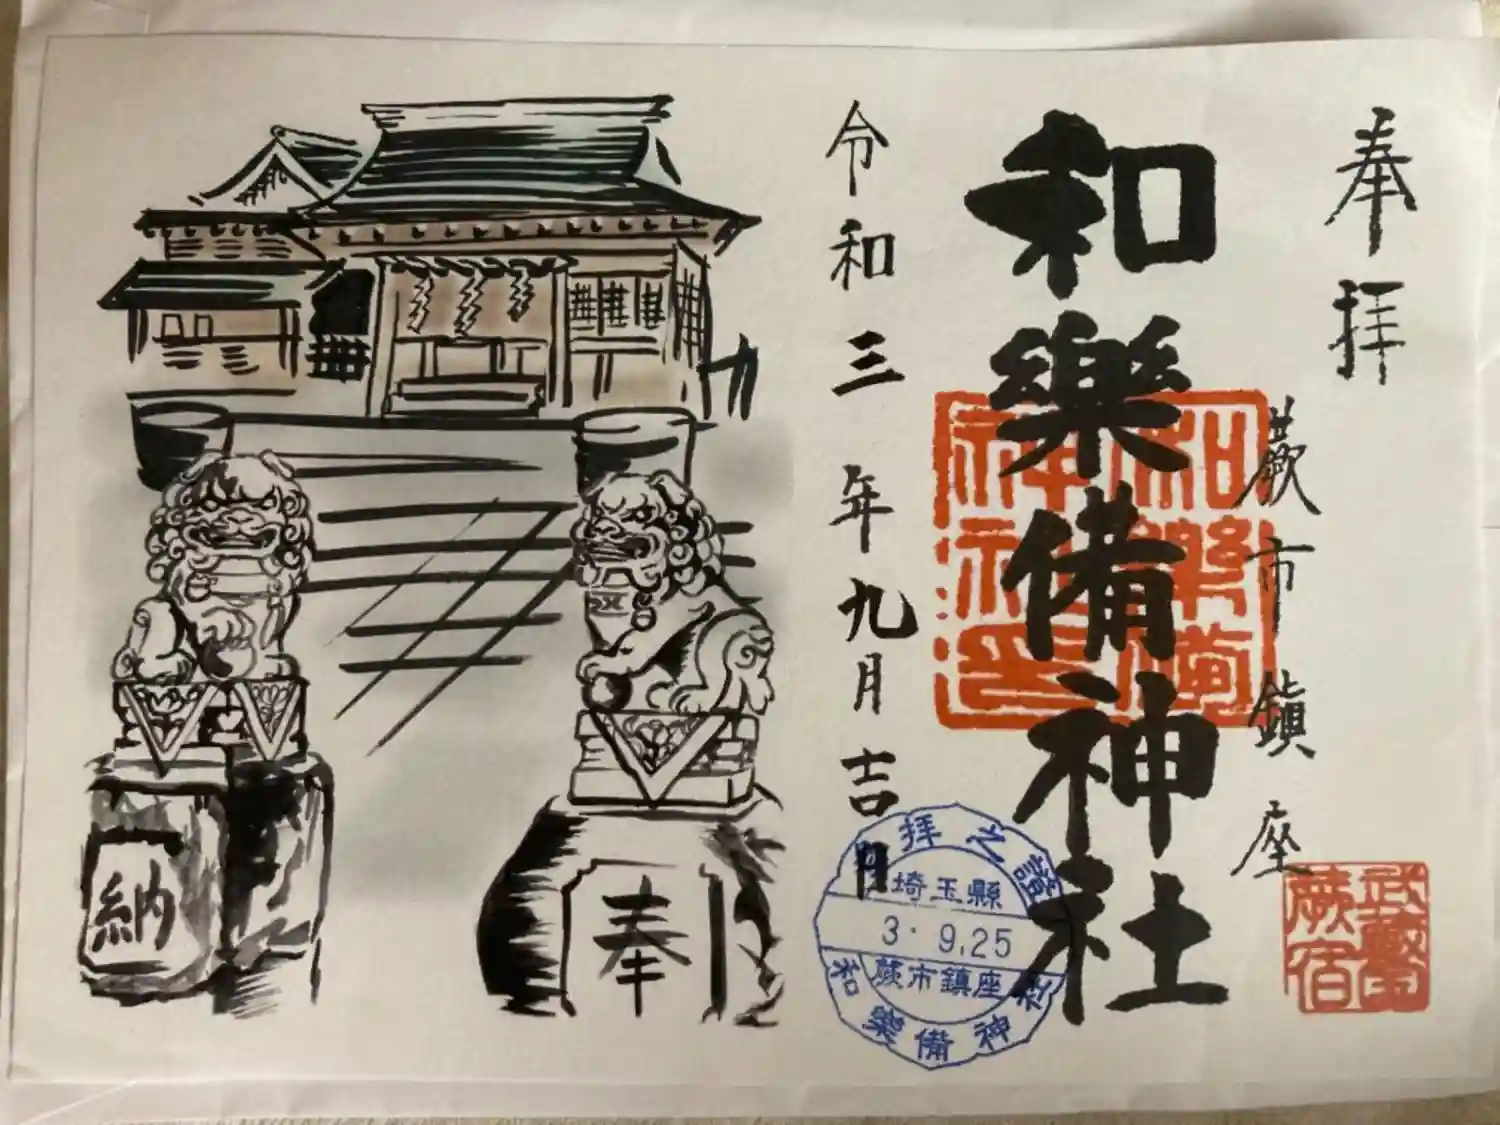 奉拝
蕨市鎮座
武蔵国
蕨宿
和樂備神社
和樂備
神社印
令和三年九月吉日
拝之證
埼玉縣
3.9.25
蕨市鎮座
和樂備神社
奉
納